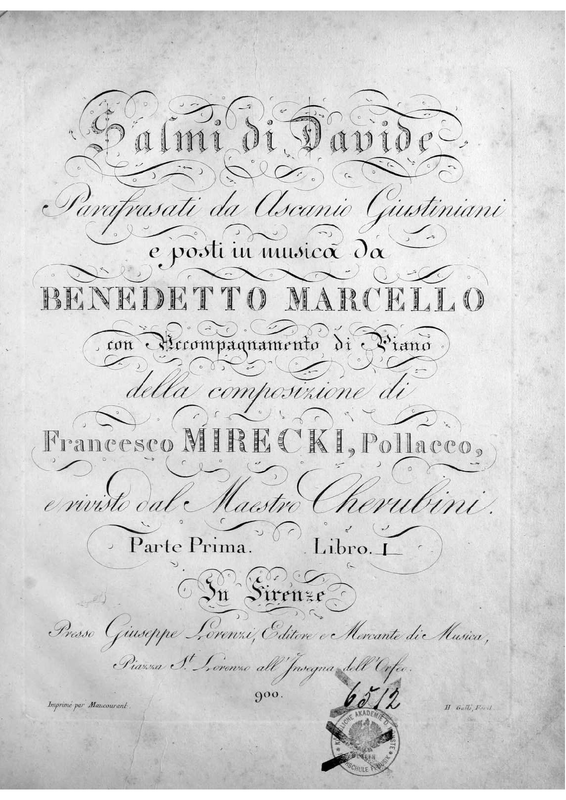 Salmi di Davide
Parafrasati da Ascanio Giustiniani
e posti in musica da
BENEDETTO MARCELLO
con Accompagnamento di Piano
della composizione di
Francesco MIRECKI, Pollacco,
e rivisto dal Maestro Cherubini.
Parte Prima. Libro. I
In Firenze
Presso Giuseppe Lorenzi, Editore e Mercante di Musica,
Piazza St. Lorenzo all'Insegna dell'Orfeo.
900.
6512
Imprimé par Maucourant.